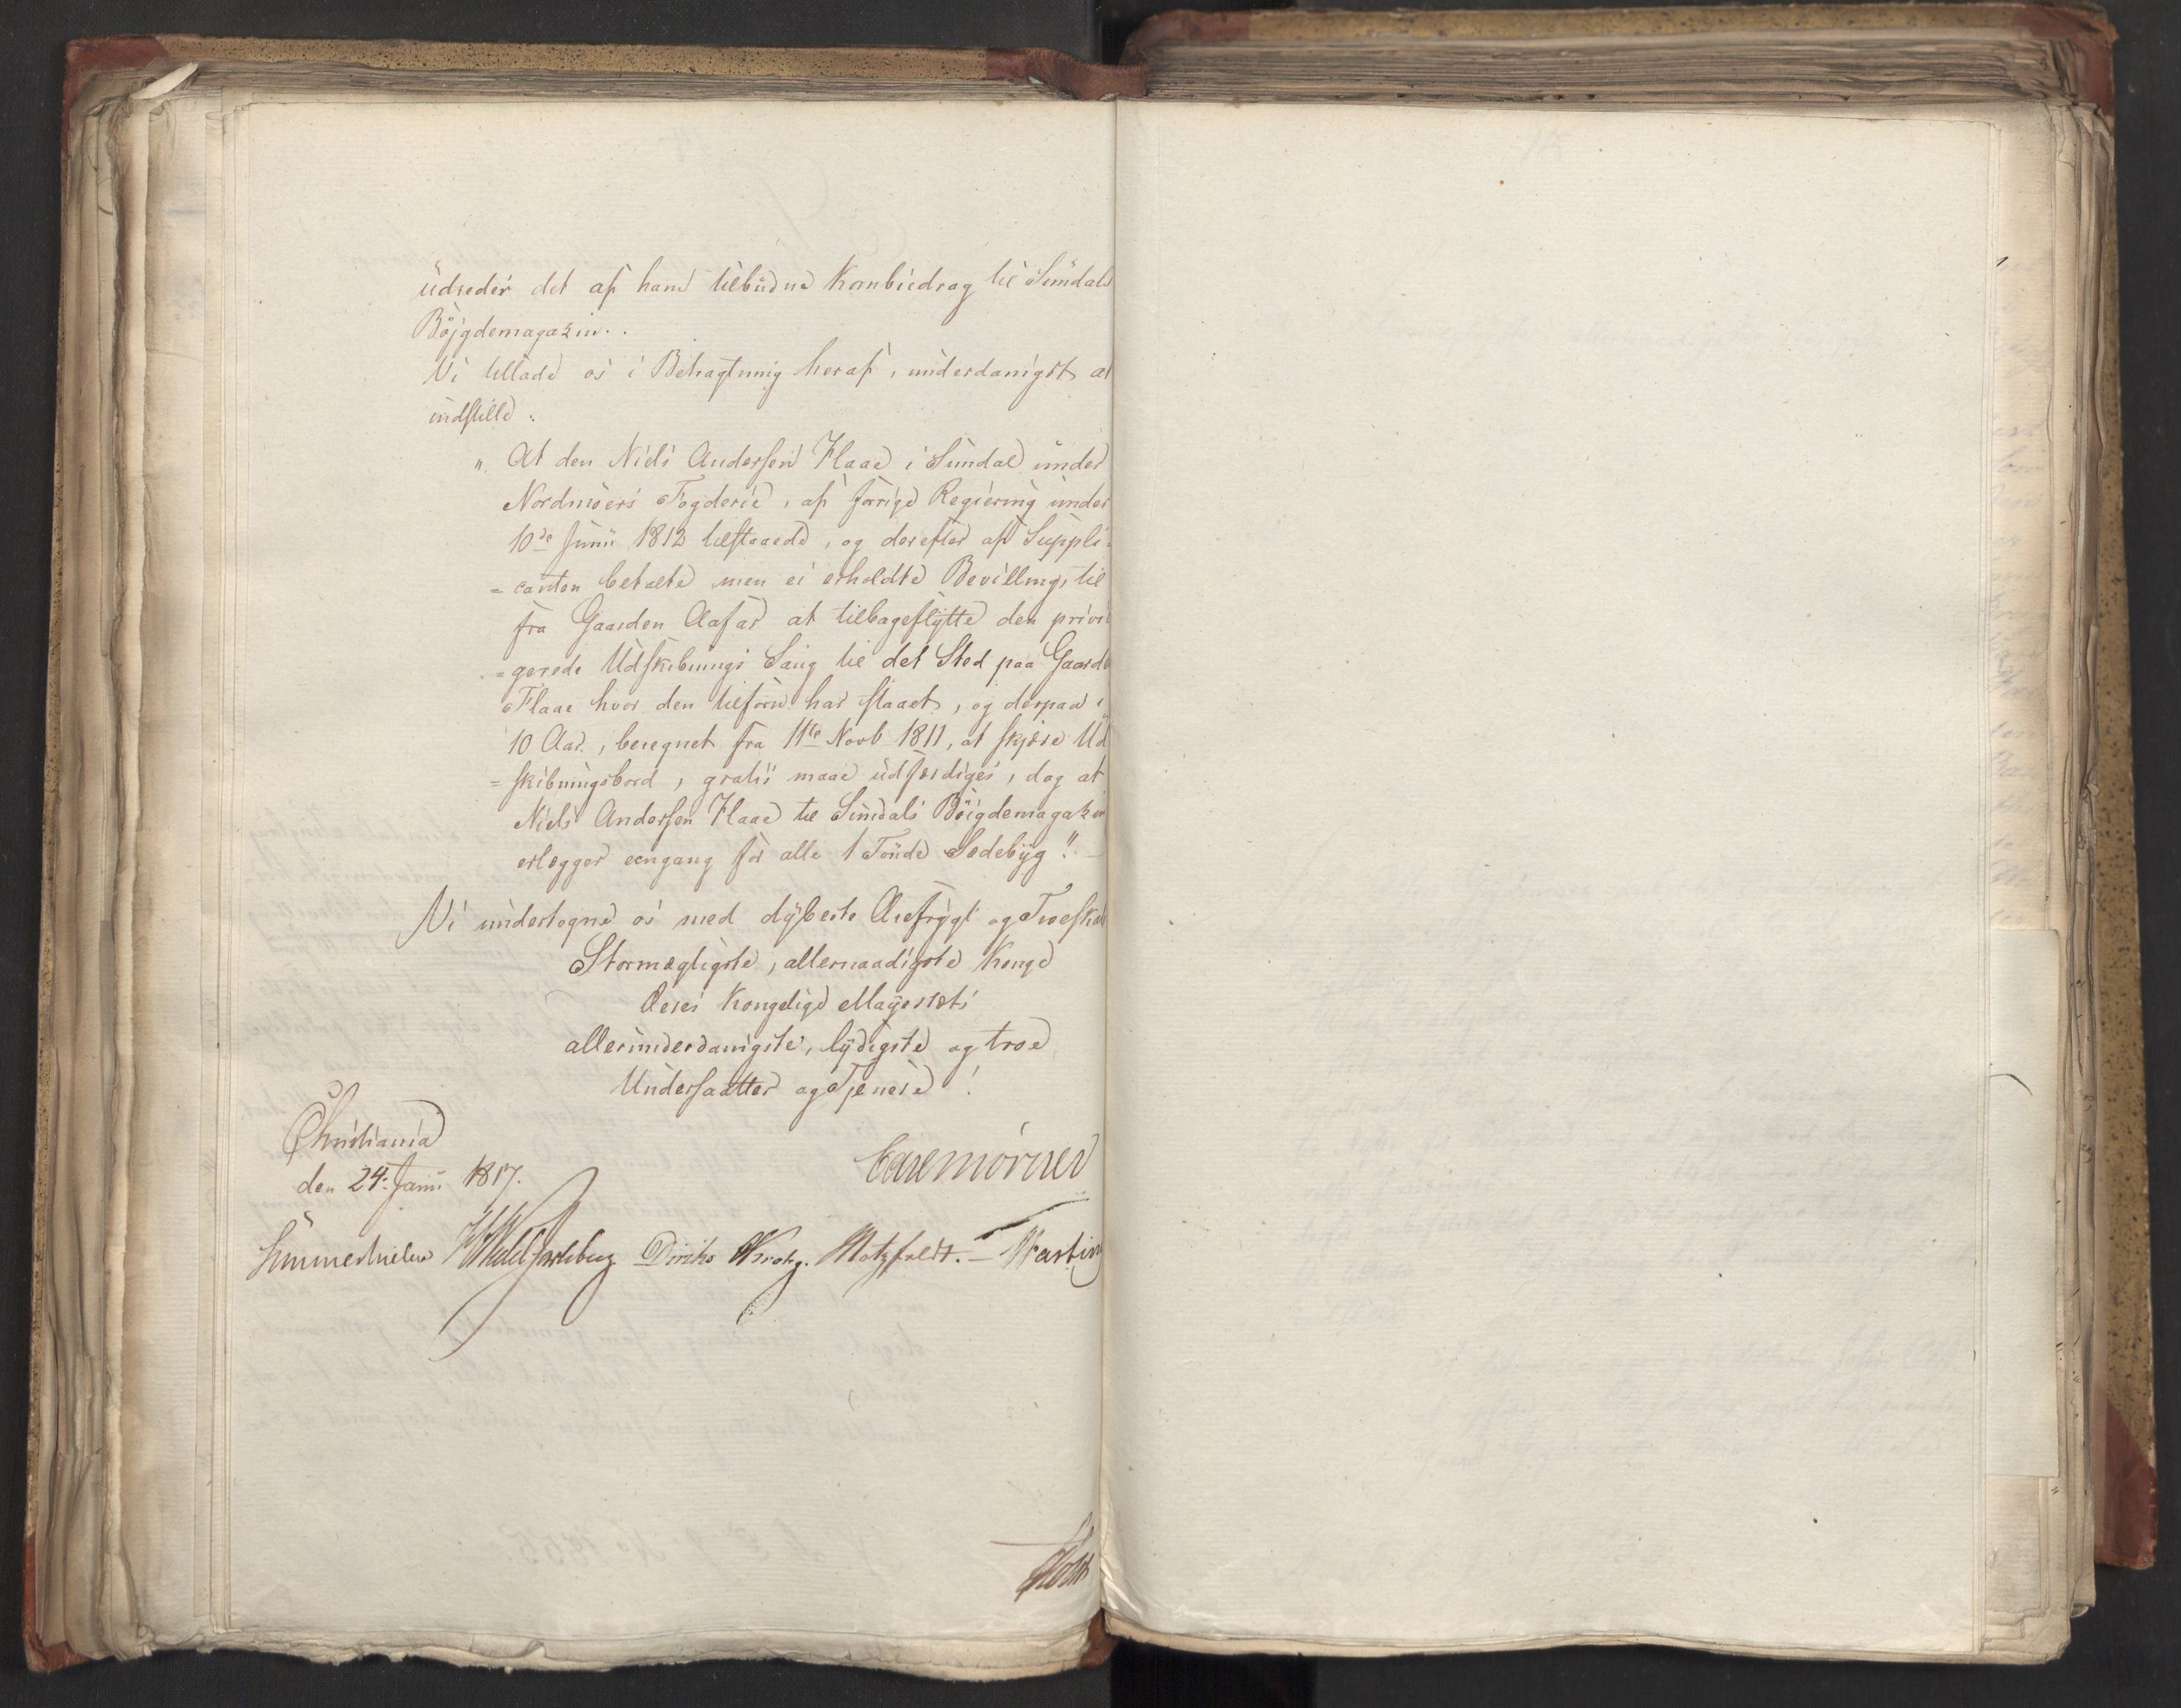 udreder det af ham tilbudne Kornbiedrag til Sundals
Böjgdemagazin.
Vi tillade os i Betragtning heraf, underdanigst at
indstille:
„At den Niels Andersen Flaae i Sundal under
Nordmøers Fogderie, af forrige Regiering under
10de Junii 1812 tilstaaede, og derefter af Suppli-
=canten betalte men ei erholdte Bevilling, til
fra Gaarden Aafar at tilbageflytte den privi
=gerede Udskibnings Saug til det Sted paa Gaarde
Flaae hvor den tilforn har staaet, og derpaa i
10 Aar, beregnet fra 11te Novb 1811, at skjære Ud
=skibningsbord, gratis maae udfærdiges, dog at
Niels Andersen Flaae til Sundals Böigdemagazin
erlægger eengang for alle 1 Tønde Sædebyg“!
Vi undertegne os med dybeste Ærefrygt og Troeskab
Stormægtigste, allernaadigste Konge
Deres Kongelige Mayestæts
allerunderdanigste, lydigste og troe
Undersaatter og Tjenere!
Christiania
den 24. Junii 1817.
Carl Mörner
Sommerhielm HWedelJarlsberg Diriks Krohg. Motzfeldt. Fasting
Holst